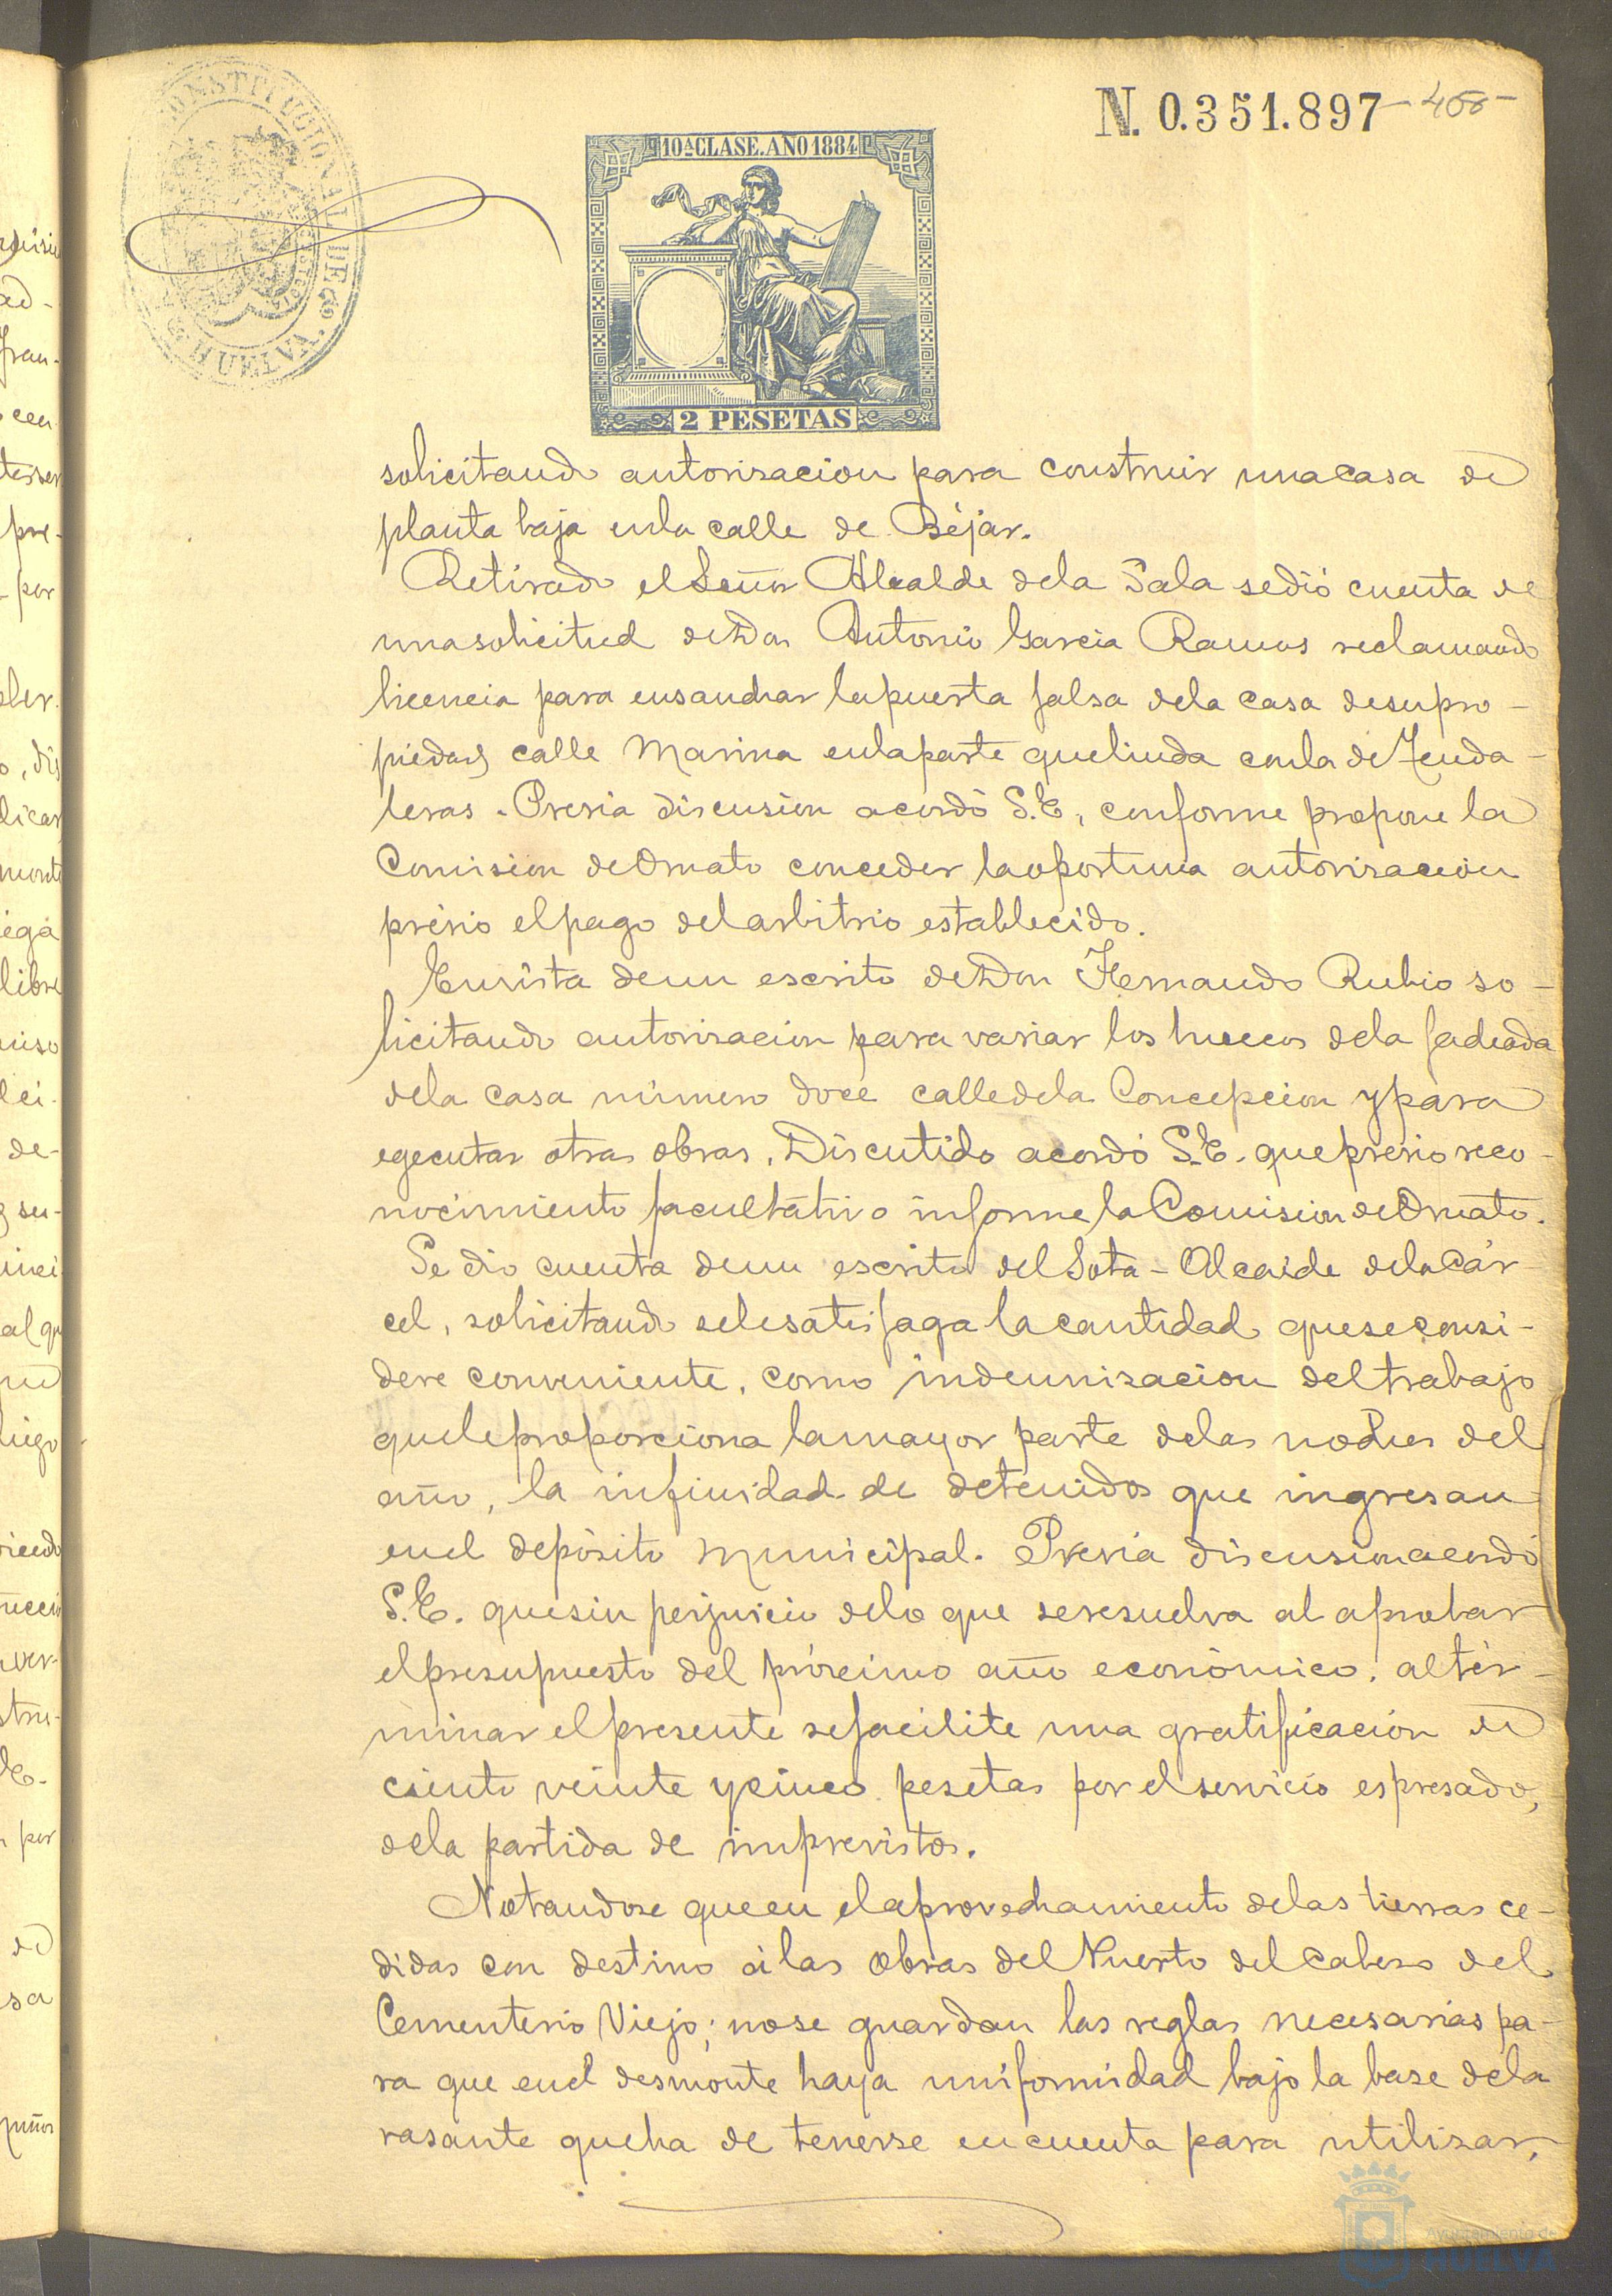 N. 0.351.897
CONSTITUCIONAL DE HUELVA
10ª CLASE. AÑO 1884
2 PESETAS
solicitando autorisacion para construir una casa de
planta baja en la calle de Béjar.
Retirado el Señor Alcalde de la Sala se dió cuenta de
una solicitud de Don Antonio Garcia Ramos reclamando
licencia para ensanchar la puerta falsa de la casa de su pro-
piedad calle Marina en la parte que linda con la de Tenda-
leras. Previa discusion acordó S.E., conforme propone la
Comision de Ornato conceder la oportuna autorisacion
prévio el pago del arbitrio establecido.
En vista de un escrito de Don Fernando Rubio so-
licitando autorisacion para variar los huecos de la fachada
de la casa número doce calle de la Concepcion y para
egecutar otras obras. Discutido acordó S.E. que previo reco-
nocimiento facultativo informe la Comision de Ornato.
Se dio cuenta de un escrito del Sota-Alcaide de la Cár-
cel, solicitando se le satisfaga la cantidad que se consi-
dere conveniente, como indemnisacion del trabajo
que le proporciona la mayor parte de las noches del
año, la infinidad de detenidos que ingresan
en el depósito Municipal. Previa discusion acordó
S.E. que sin perjuicio de lo que se resuelva al aprobar
el presupuesto del próximo año económico, al ter-
minar el presente se facilite una gratificacion de
ciento veinte y cinco pesetas por el servicio espresado,
de la partida de imprevistos.
Notandose que en el aprovechamiento de las tierras ce-
didas con destino á las obras del Puerto del Cabeso del
Cementerio Viejo; no se guardan las reglas necesarias pa-
ra que en el desmonte haya uniformidad bajo la base de la
rasante que ha de tenerse en cuenta para utilisar,
Ayuntamiento de
HUELVA